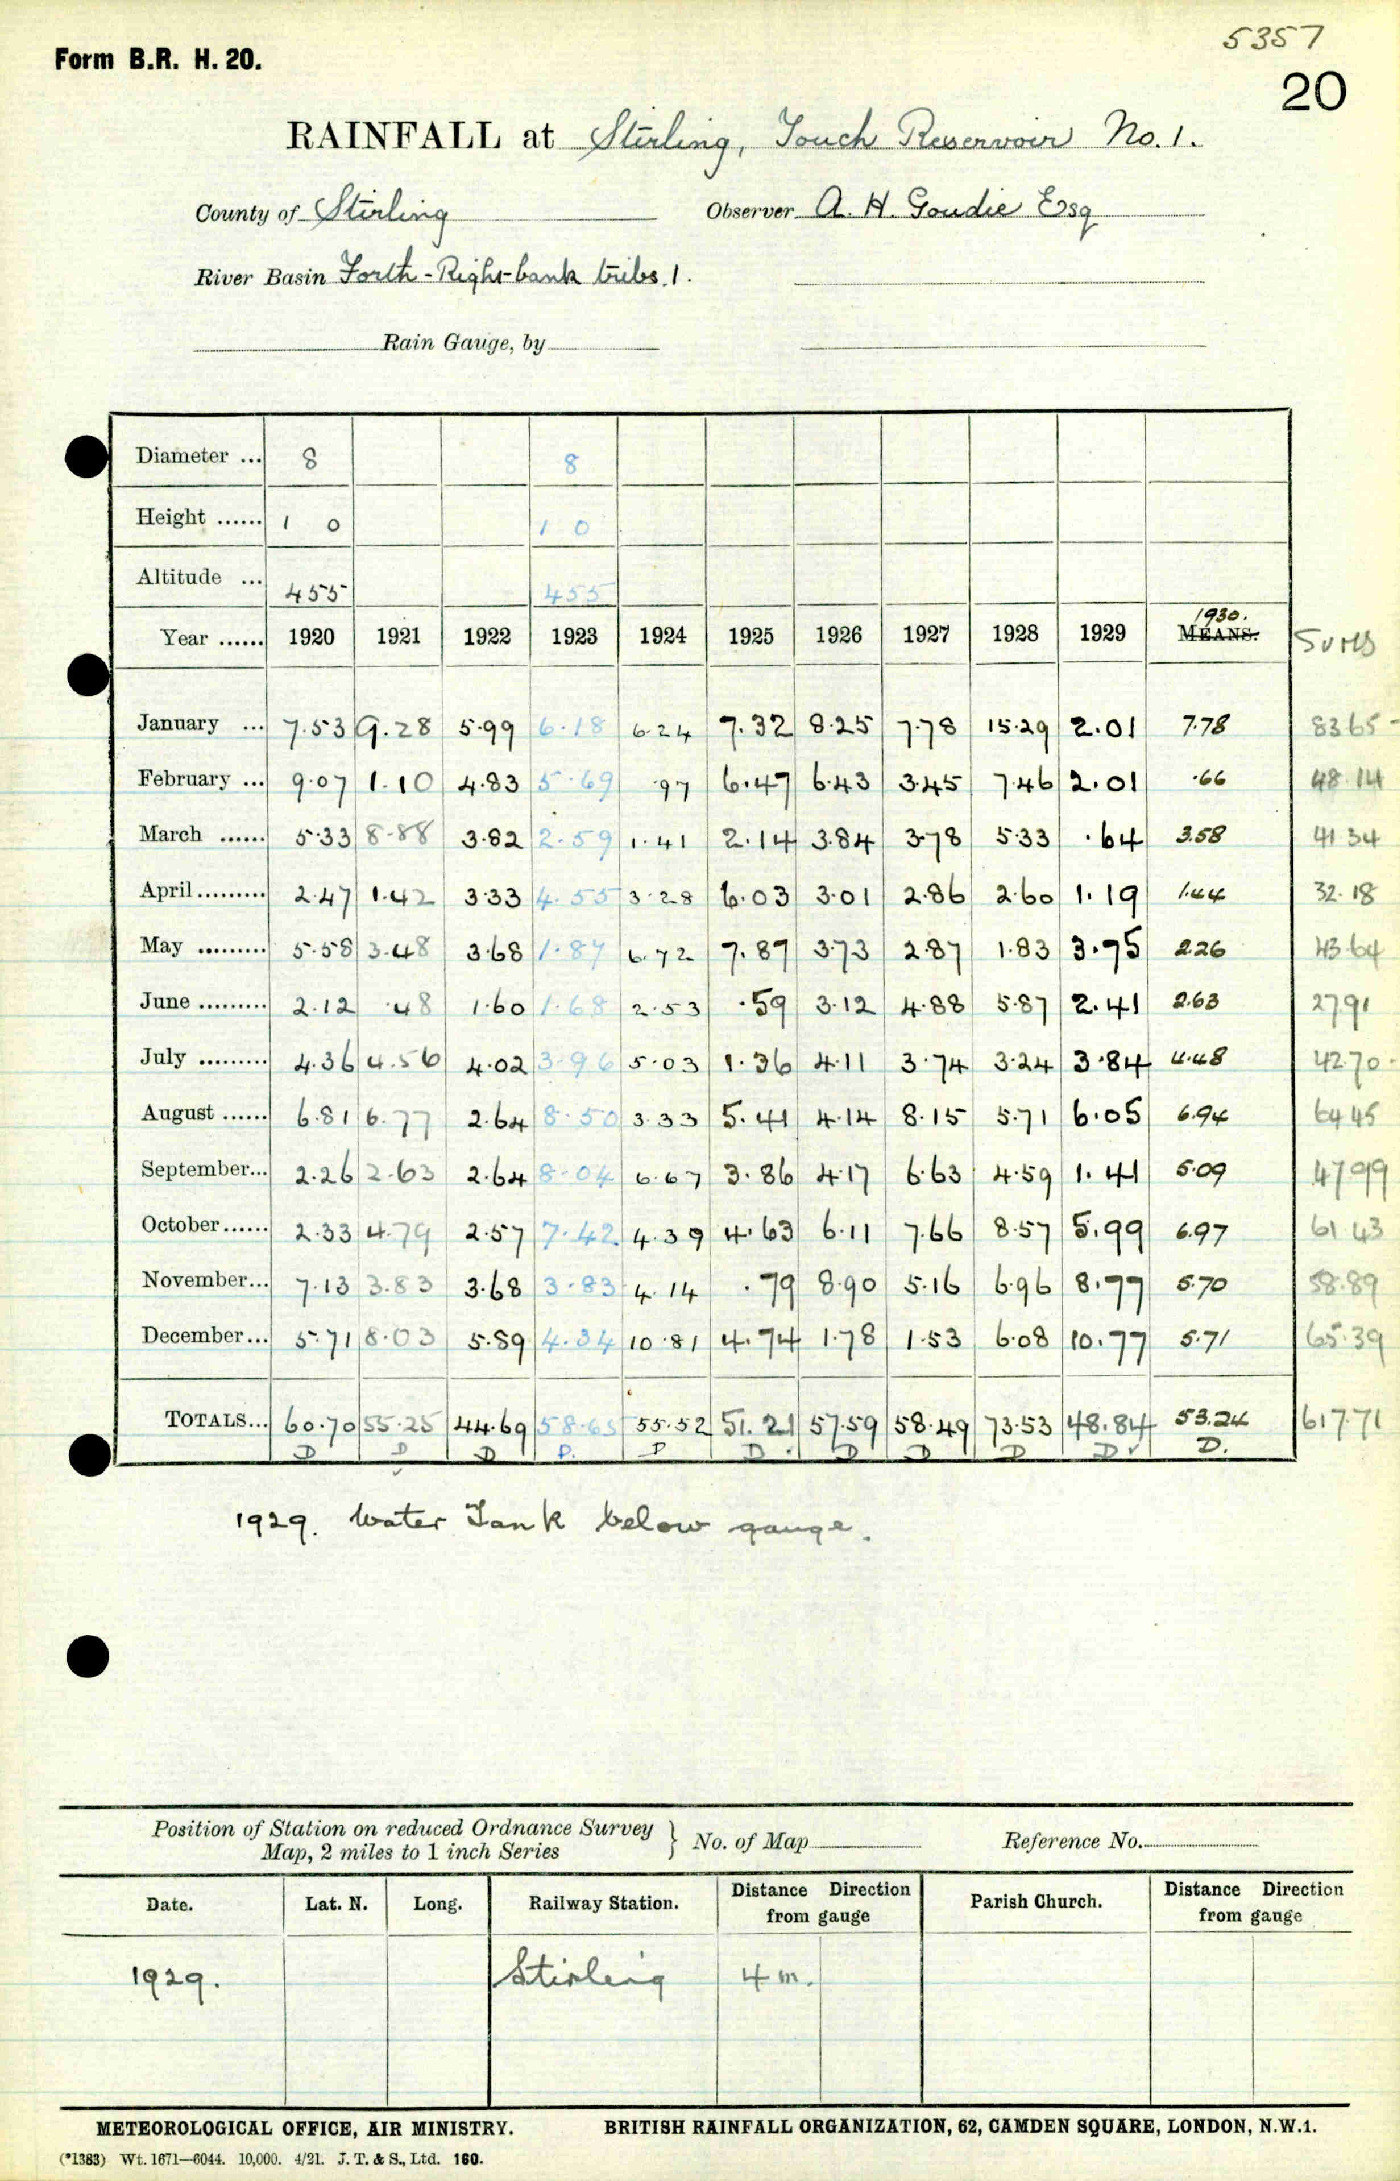 5357
Form B.R. H. 20.
20
RAINFALL at Stirling, Touch Reservoir No. 1.
County of Stirling Observer A. H. Goudie Esq
River Basin Forth - Right-bank tribs. 1.
Rain Gauge, by
Diameter ... 8 8
Height ...... 1 0 1 0
Altitude ... 455 455
Year ...... 1920 1921 1922 1923 1924 1925 1926 1927 1928 1929 1930. MEANS. Sums
January ... 7.53 9.28 5.99 6.18 6.24 7.32 8.25 7.78 15.29 2.01 7.78 83.65
February ... 9.07 1.10 4.83 5.69 .97 6.47 6.43 3.45 7.46 2.01 .66 48.14
March ...... 5.33 8.88 3.82 2.59 1.41 2.14 3.84 3.78 5.33 .64 3.58 41.34
April ......... 2.47 1.42 3.33 4.55 3.28 6.03 3.01 2.86 2.60 1.19 1.44 32.18
May ......... 5.58 3.48 3.68 1.87 6.72 7.87 3.73 2.87 1.83 3.75 2.26 43.64
June ......... 2.12 .48 1.60 1.68 2.53 .59 3.12 4.88 5.87 2.41 2.63 27.91
July ......... 4.36 4.56 4.02 3.96 5.03 1.36 4.11 3.74 3.24 3.84 4.48 42.70
August ...... 6.81 6.77 2.64 8.50 3.33 5.41 4.14 8.15 5.71 6.05 6.94 64.45
September... 2.26 2.63 2.64 8.04 6.67 3.86 4.17 6.63 4.59 1.41 5.09 47.99
October...... 2.33 4.79 2.57 7.42 4.39 4.63 6.11 7.66 8.57 5.99 6.97 61.43
November... 7.13 3.83 3.68 3.83 4.14 .79 8.90 5.16 6.96 8.77 5.70 58.89
December... 5.71 8.03 5.89 4.34 10.81 4.74 1.78 1.53 6.08 10.77 5.71 65.39
TOTALS... 60.70 55.25 44.69 58.65 55.52 51.21 57.59 58.49 73.53 48.84 53.24 617.71
D D D D D D D D D D D.
1929. Water Tank below gauge.
Position of Station on reduced Ordnance Survey Map, 2 miles to 1 inch Series } No. of Map Reference No.
Date. Lat. N. Long. Railway Station. Distance Direction from gauge Parish Church. Distance Direction from gauge
1929. Stirling 4 m.
METEOROLOGICAL OFFICE, AIR MINISTRY. BRITISH RAINFALL ORGANIZATION, 62, CAMDEN SQUARE, LONDON, N.W.1.
(*1383) Wt. 1671—6044. 10,000. 4/21. J. T. & S., Ltd. 160.